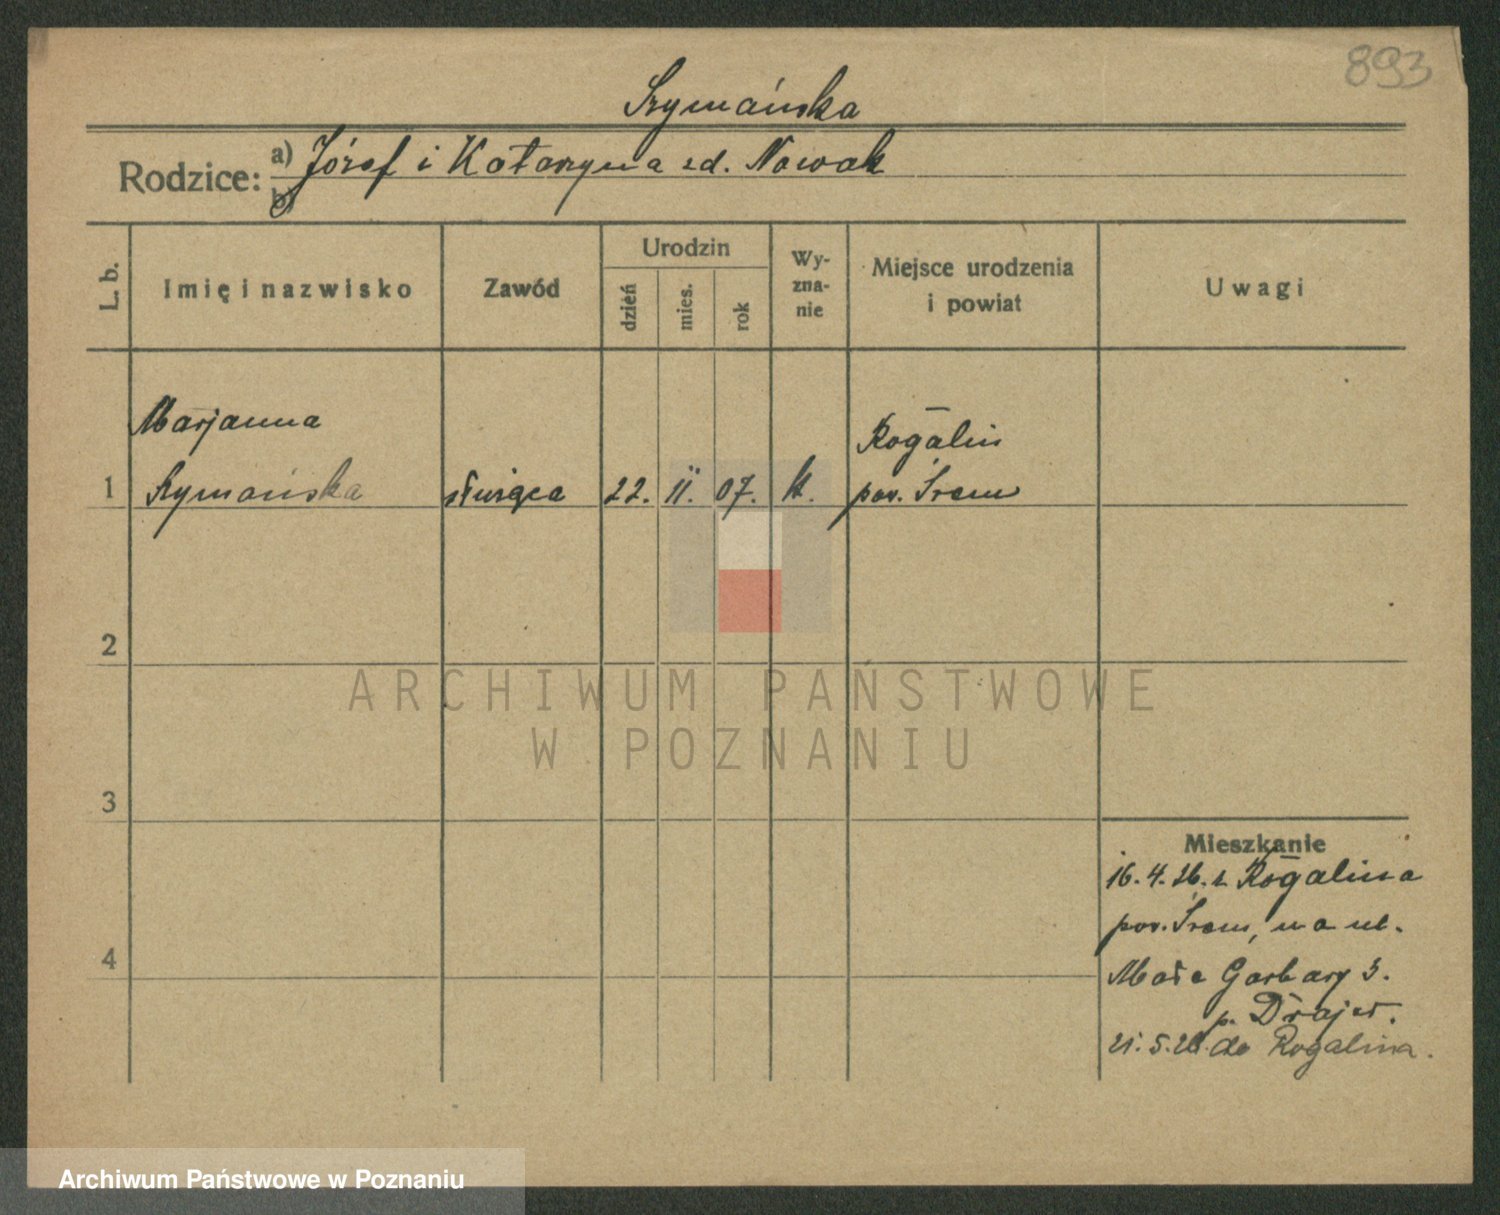 893
Szymańska
Rodzice: a) Józef i Katarzyna zd. Nowak
b)
L. b.
Imię i nazwisko
Zawód
Urodzin
dzień
mies.
rok
Wy-
zna-
nie
Miejsce urodzenia
i powiat
Uwagi
Marjanna
Rogalin
1 Szymańska służąca 22. II. 07. k. pow. Śrem
2
ARCHIWUM PAŃSTWOWE
W POZNANIU
3
Mieszkanie
16.4.26. z Rogalina
pow. Śrem, na ul.
4
Małe Garbary 3.
p.
21.5.26. do Rogalina.
Archiwum Państwowe w Poznaniu